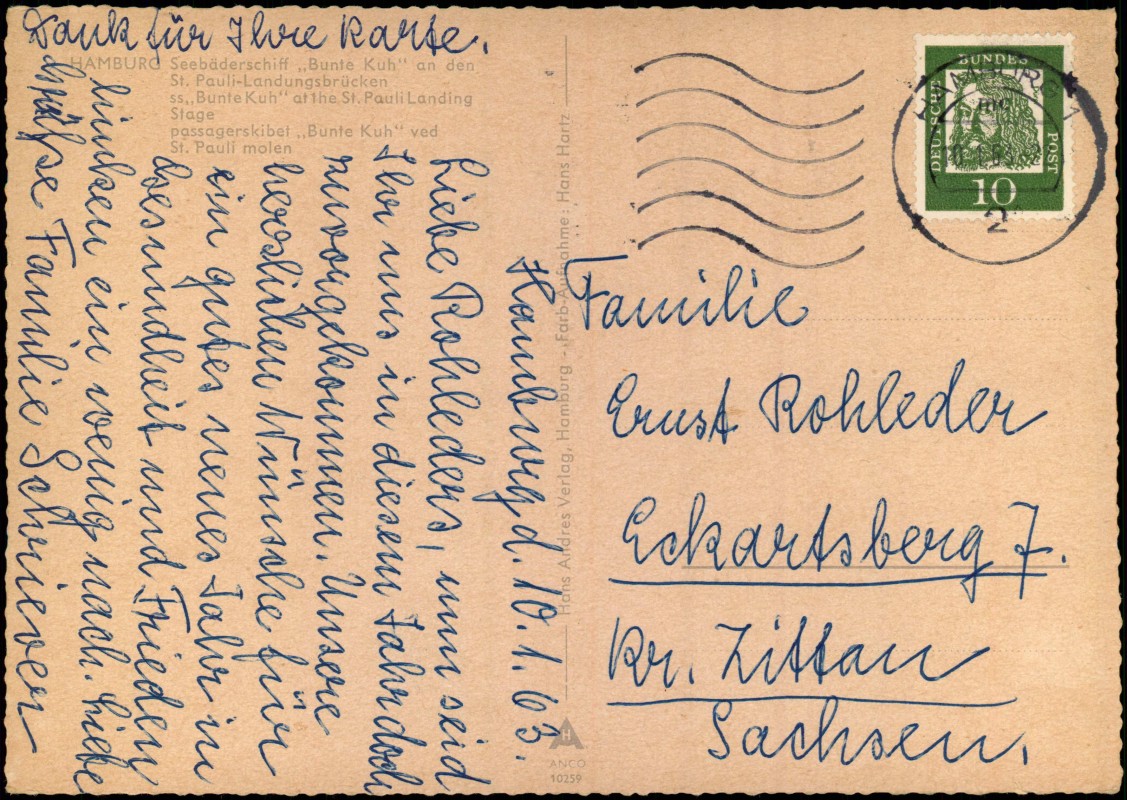 Dank für Ihre Karte.
HAMBURG Seebäderschiff „Bunte Kuh" an den
St. Pauli-Landungsbrücken
ss „Bunte Kuh" at the St. Pauli Landing
Stage
passagerskibet „Bunte Kuh" ved
St. Pauli molen
Hamburg d. 10. 1. 63.
Liebe Rohleders, nun seid
Ihr uns in diesem Jahr doch
zuvorgekommen. Unsere
herzlichen Wünsche für
ein gutes neues Jahr in
Gesundheit und Frieden
hinken ein wenig nach. Liebe
Grüße Familie Schriever
Hans Andres Verlag, Hamburg - Farb-Aufnahme: Hans Hartz
H
ANCO
10259
DEUTSCHE
BUNDES
POST
10
HAMBURG 1
2
Familie
Ernst Rohleder
Eckartsberg 7.
Kr. Zittau
Sachsen.